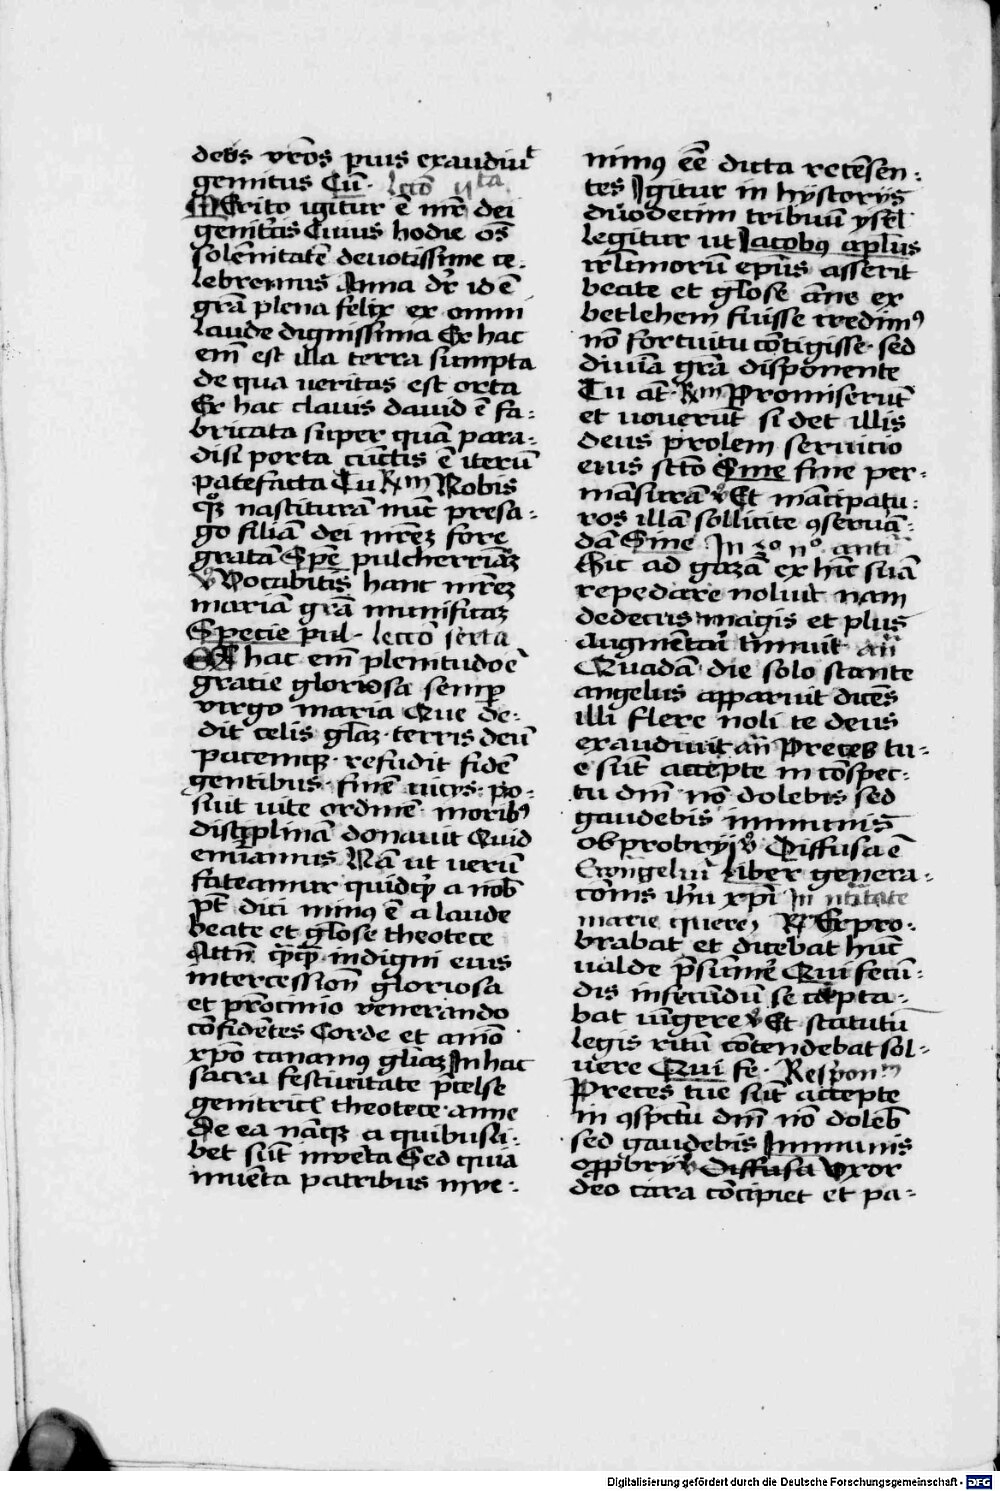 deus vr̄os pius exaudiuᵗ
gemitus Cū· lectō vᵗᵃ
Merito igitur ē mr̄ dei
genitͥcis Cuius hodie os̄
solēnitatē deuotissime ce-
lebremus Anna dr̄ id ē
grā plena felix ex omni
laude dignissima Ex hac
em̄ est illa terra sumpta
de qua ueritas est orta
Ex hac clauis dauid ē fa-
bricata super quā para-
disi porta cūctis ē iterū
patefacta Tu Rm Nobis
qꝫ nasciturā nūc presa-
go filiam dei mr̄eꝫ fore
gratā Spē pulcherriāꝫ
℣ Vocabitis hanc mr̄eꝫ
mariā grā munificaꝫ
Specie pul· lecco serta
EX hac em̄ plenitudo ē
gratie gloriosa semꝑ
virgo maria Que de-
dit celis gl̄aꝫ· terris deū
pacemqꝫ· refudit fidē
gentibus· finē vicijs· po-
suit uite ordinē· moribꝰ
disciplinā donauit Quid
emiamus Nā ut uerū
fateamur quidqͥ a nob̄
pt̄ dici minꝰ ē a laude
beate et gl̄ose theotece
Attn̄ qͣꝫqͣꝫ indigni eius
intercession̄ gloriosa
et prōcinio venerando
cōfidētes Corde et animō
xp̄o canamꝰ gl̄iaꝫ In hac
sacra festiuitate p̄celse
genitricꝭ theotece anne
De ea nāqꝫ a quibusli-
bet sūt inuēta Sed quia
inuēta patribus inue-
nimꝰ eē dicta recēsen-
tes Igitur in hystorijs
duodecim tribuū ysrl̄
legitur ut Jacobꝰ apl̄us
irl̄imorū ep̄us asserit
beate et gl̄ose āne ex
betlehem fuisse credimꝰ
nō fortuitu cōtigisse· sed
diuiā grā disponente
Tu āt· Rm Promiserūt
et uouerūt si det illis
deus prolem seruicio
eius sctō Sine fine per-
māsurā ℣ Et mācipatu-
ros illā sollicite ꝯseruā-
dā Sine In ꝫo no antͥ
Hic ad gazā ex hīc suā
repedare noluit nam
dedecus magis et plus
augmētari timuit an̄
Quadā die solo stante
angelus apparuit dicēs
illi flere noli te deus
exaudiuit an̄ Preces tu-
e sūt accepte in cōspec-
tu dnī nō dolebis sed
gaudebis immunis
obprobrij ℣ Diffusa ē
Ewngeliū Liber genera-
cōnis ih̄u xp̄i in ntītate
marie quere℟ Expro-
brabat et dicebat hūc
ualde p̄sūmē Qui fecū-
dis infecūdū se cōpta-
bat iūgere ℣ Et statutū
legis ritū cōtendebat sol-
uere Qui fe· Responᵐ
Preces tue sūt accepte
in ꝯspctū dnī nō doleb̄
sed gaudebis Immunis
oꝓbrij ℣ Diffusa Vxor
deo cara cōcipiet et pa-
Digitalisierung gefördert durch die Deutsche Forschungsgemeinschaft - DFG